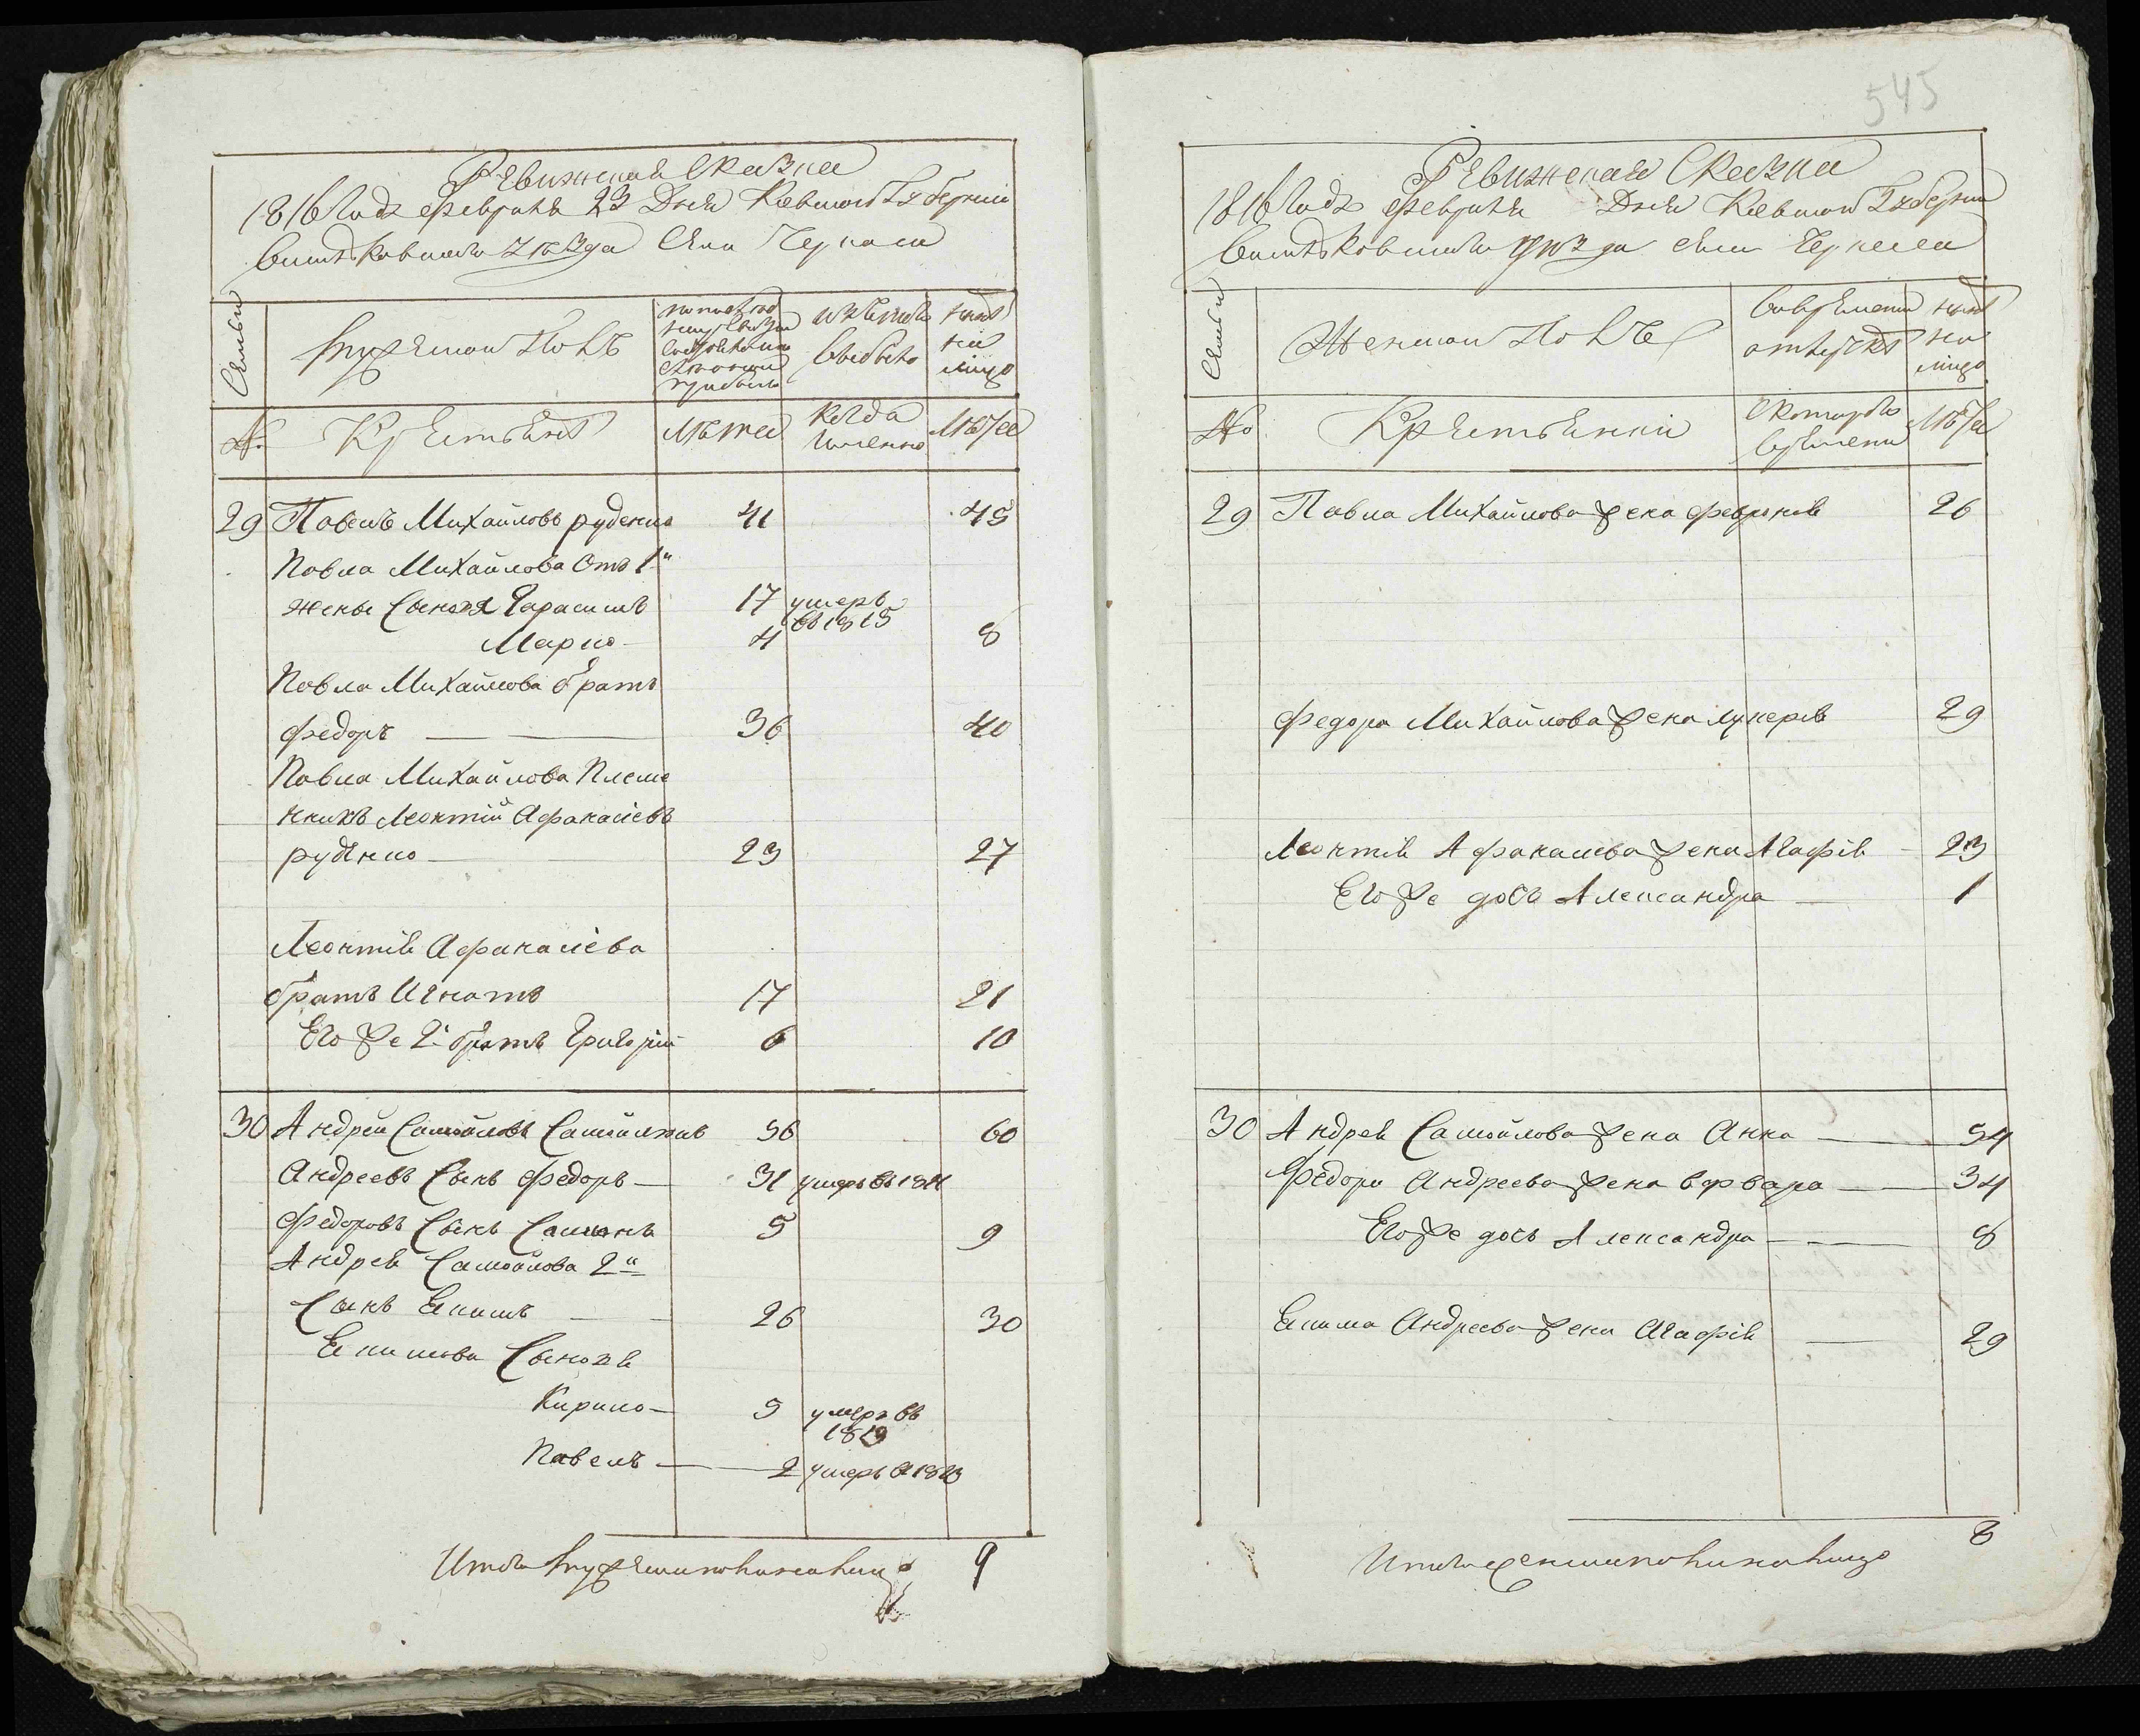 Ревижская Сказка
1816 Года Февраля 23 Дня Киевской Губернии
Васильковского Уѣзда Села Черкаса
Семьи
мужеской Полъ
по последней ревизии состояло и после оной прибыло
изъ того выбыло
нынѣ на лицо
№
Крестьянъ
Лѣта
Когда именно
Лѣта
29 Павелъ Михайловъ руденко 41 45
Павла Михайлова Отъ 1й
жены Сыновя Гарасимъ 17 умеръ
въ 1815
Марко 4 8
Павла Михайлова братъ
федоръ 36 40
Павла Михайлова Племе
никъ Леонтій Афанасіевъ
руденко 23 27
Леонтія Афанасіева
братъ Игнатъ 17 21
Его же 2й братъ Григорій 6 10
30 Андрей Самойловъ Самойленко 56 60
Андреевъ Сынъ Федоръ 31 умеръ въ 1814
Федоровъ Сынъ Самонъ 5 9
Андрея Самойлова 2й
Сынъ Екимъ 26 30
Екимова Сыновя
Кирило 5 умеръ въ
1813
Павелъ 2 умеръ въ 1813
Итого мужеска пола на лицо 9
545
Ревижская Сказка
1816 Года Февраля Дня Киевской Губернии
Васильковского уѣзда села Черкаса
Семьи
Женской Полъ
Во временной отлучкѣ
нынѣ на лицо
№
Крестьянки
С котораго времени
Лѣта
29 Павла Михайлова жена феврония 26
Федора Михайлова жена лукерія 29
Леонтія Афанасіева жена Агафія 23
Его же дочь Александра 1
30 Андрея Самойлова жена Анна 54
Федора Андреева жена варвара 34
Его же дочь Александра 8
Екима Андреева жена Агафія 29
Итого женска пола на лицо 8